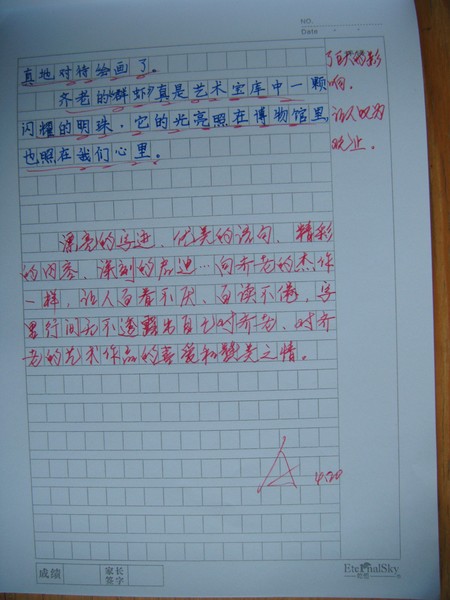 NO.
Date
真地对待绘画了。
齐老的《群虾》真是艺术宝库中一颗
闪耀的明珠。它的光亮照在博物馆里
也照在我们心里。
响。
让人叹为
观止。
漂亮的字迹、优美的语句、精彩
的内容、深刻的启迪…向齐老的杰作
一样，让人百看不厌、百读不倦，字
里行间无不透露出自己对齐老、对齐
老的艺术作品的喜爱和赞美之情。
4.20
成绩
家长
签字
EternalSky